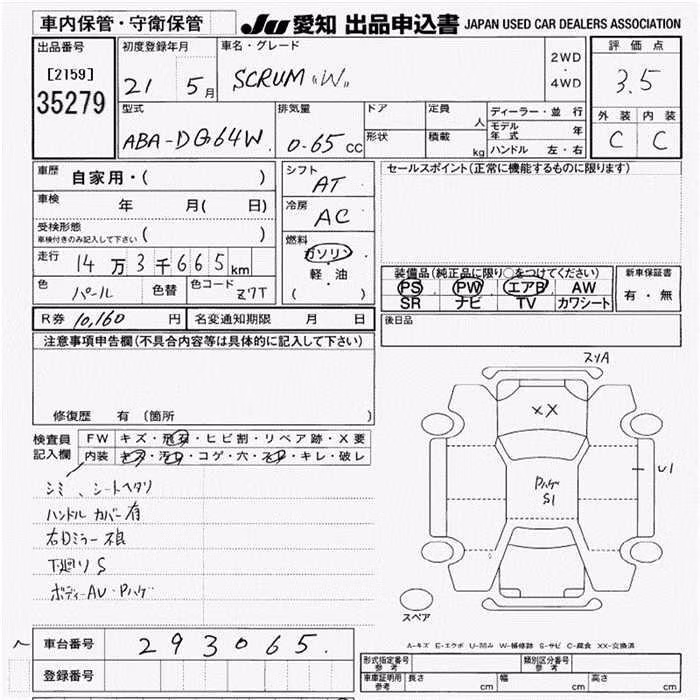 車内保管・守衛保管 JU 愛知 出品申込書 JAPAN USED CAR DEALERS ASSOCIATION
出品番号 初度登録年月 車名・グレード 2WD・4WD 評価点
[2159] 21 5月 SCRUM "W" 3.5
35279
型式 排気量 ドア 定員 人 ディーラー・並行 外装 内装
ABA-DG64W 0.65cc 形状 積載 kg モデル年式 年 C C
ハンドル 左・右
車歴 自家用・( ) シフト AT セールスポイント(正常に機能するものに限ります)
車検 年 月( 日) 冷房 AC
受検形態 車検付きのみ記入して下さい ( )
走行 14万3千665km 燃料 ガソリン・軽・油 ( )
色 パール 色替 色コード Z7T
装備品(純正品に限り○をつけてください) 新車保証書
PS PW エアB AW 有・無
SR ナビ TV カワシート
R券 10,160円 名変通知期限 月 日 後日品
注意事項申告欄(不具合内容等は具体的に記入して下さい)
修復歴 有 (箇所
検査員記入欄 FW キズ・飛石・ヒビ割・リペア跡・X要
内装 キズ・汚れ・コゲ・穴・スレ・キレ・破レ
シミ、シートヘタリ
ハンドルカバー有
右Dミラー不良
下廻りS
ボディーAU・Pハゲ
スリA
XX
Pハゲ
S1
U1
スペア
A-キズ E-エクボ U-凹み W-補修跡 S-サビ C-腐食 XX-交換済
車台番号 293065.
登録番号
形式指定番号 参考 類別区分番号 参考
車庫証明用 参考 長さ cm 幅 cm 高さ cm